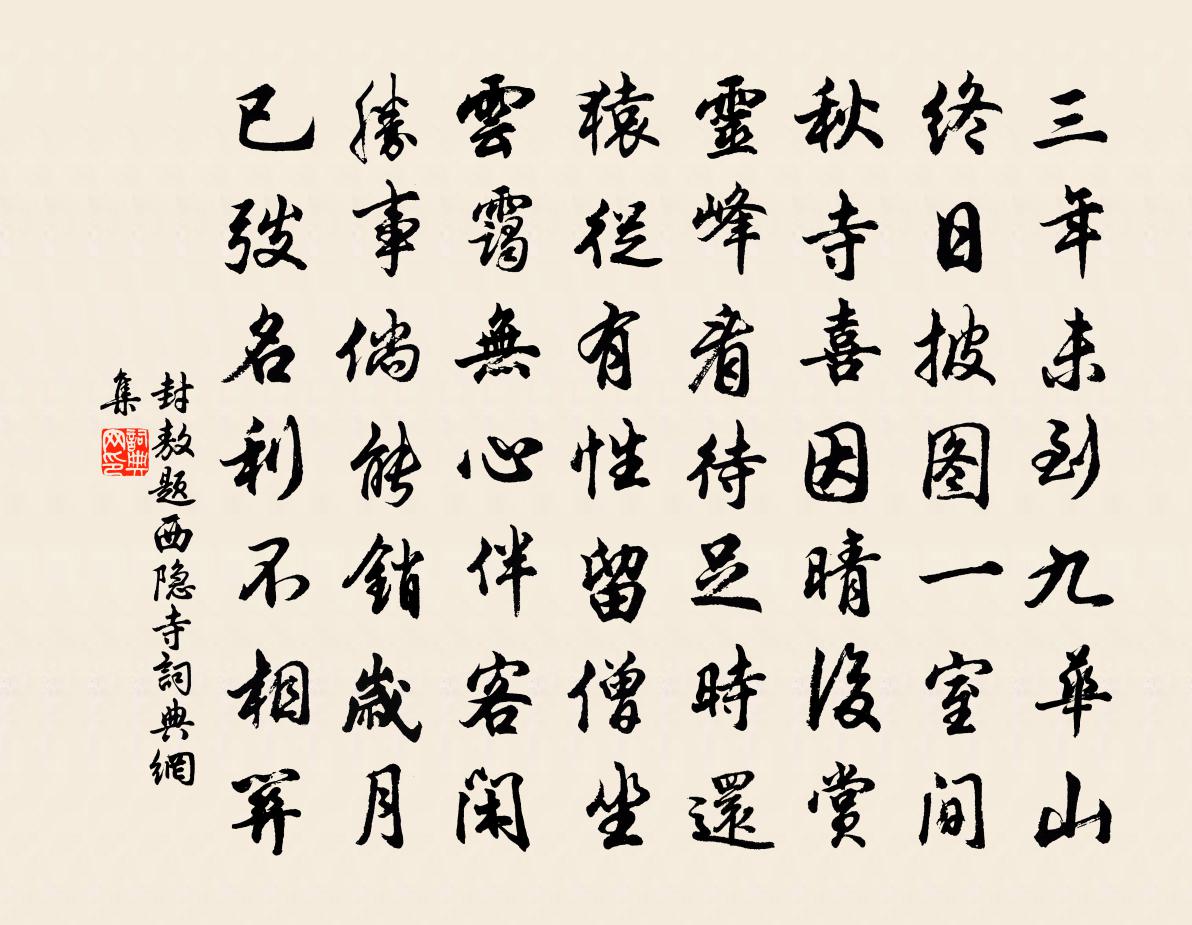 三年未到九華山
終日披图一室間
秋寺喜因晴後賞
靈峰看待足時還
猿從有性留僧坐
雲靄無心伴客閑
勝事倘能銷歲月
已拚名利不相關
封敖題西隐寺詞典網
集
詞典网印